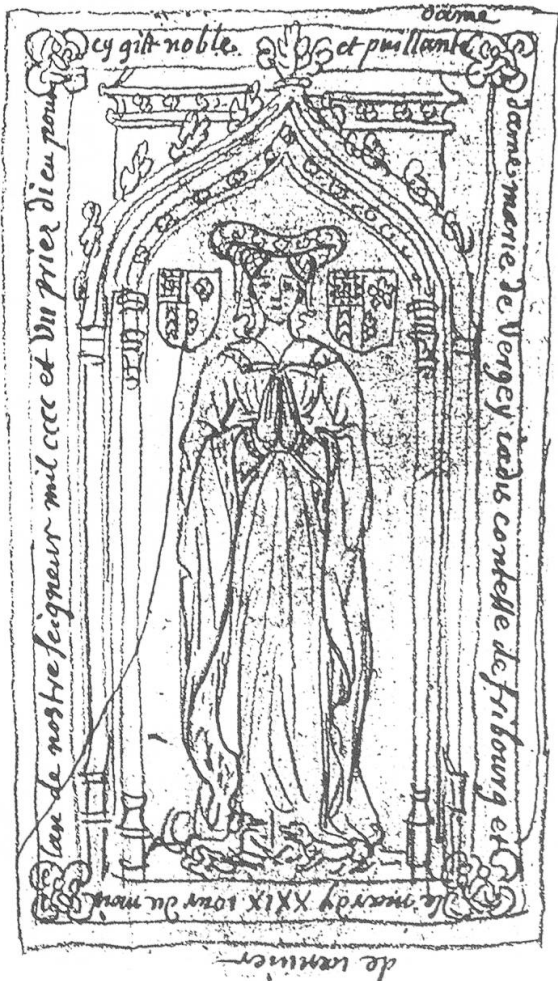 dame
cy gist noble et puissante
dame marie de Vergey iadis contesse de fribourg et
le mardy XXIX iour du mois
de ianuier
lan de nostre seigneur mil cccc et VII priez dieu pour